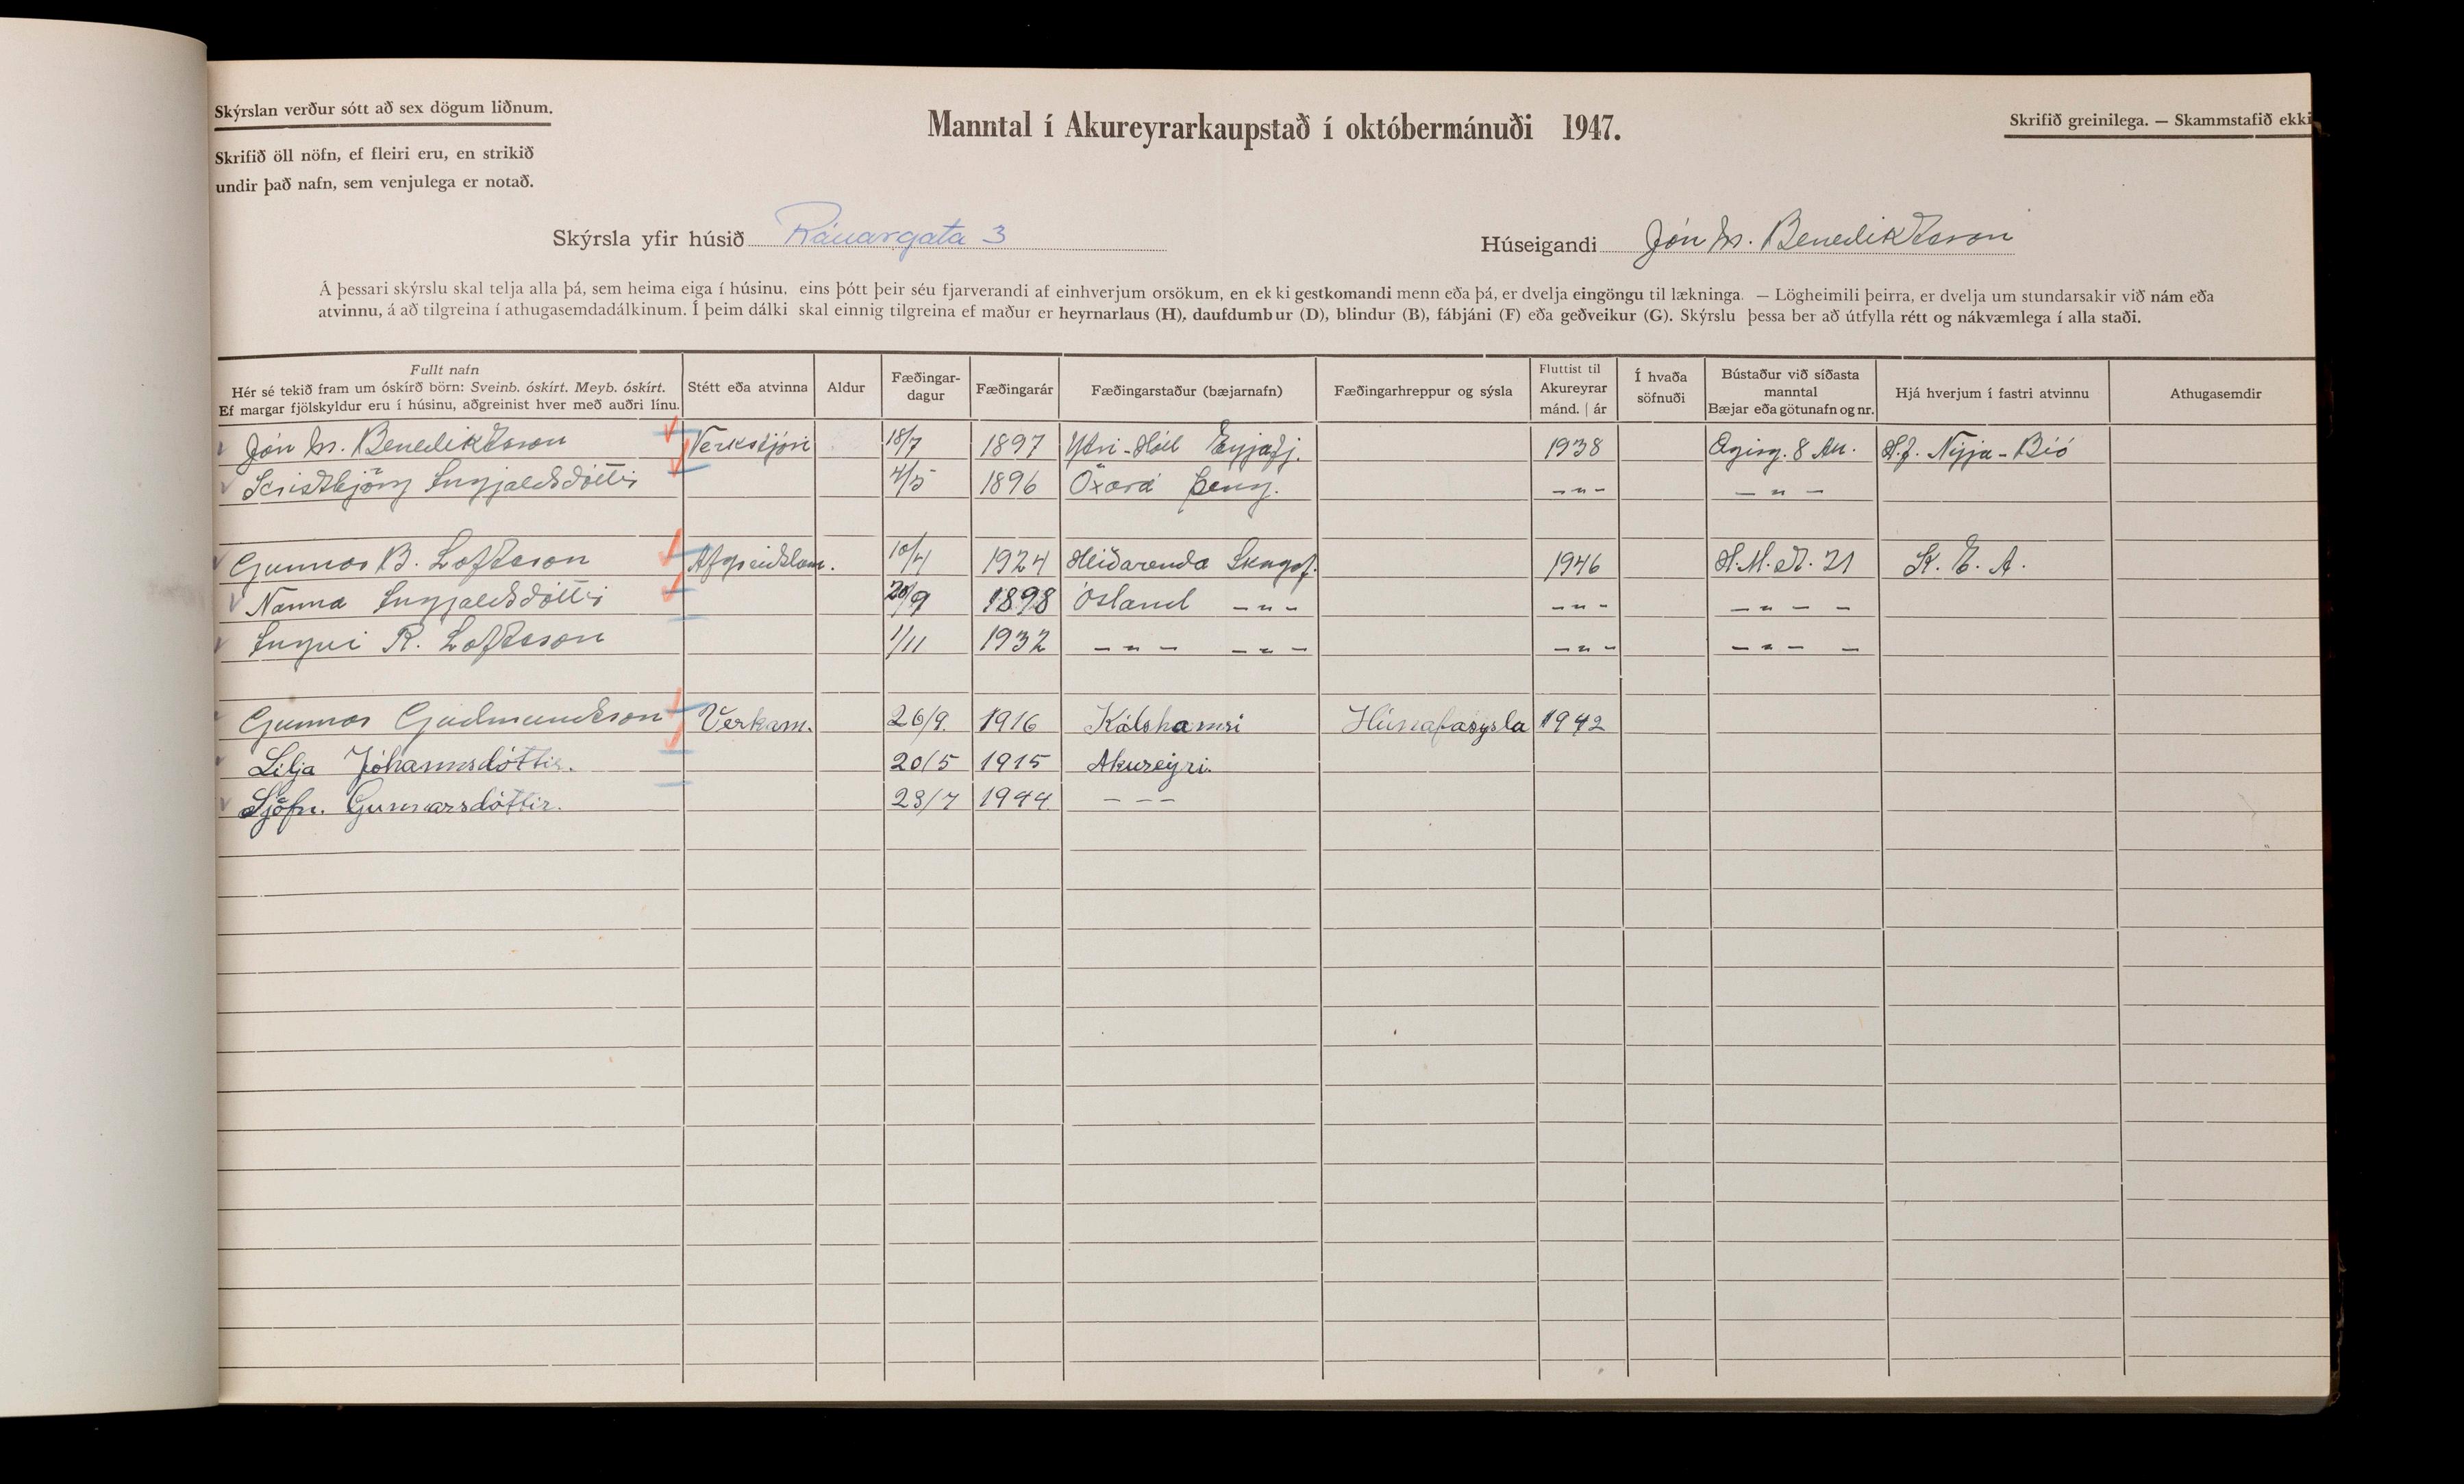 Skýrslan verður sótt að sex dögum liðnum.
Skrifið öll nöfn, ef fleiri eru, en strikið
undir það nafn, sem venjulega er notað.
Manntal í Akureyrarkaupstað í októbermánuði 1947.
Skrifið greinilega. — Skammstafið ekki
Skýrsla yfir húsið Ránargata 3
Húseigandi Jón M. Benediktsson
Á þessari skýrslu skal telja alla þá, sem heima eiga í húsinu, eins þótt þeir séu fjarverandi af einhverjum orsökum, en ekki gestkomandi menn eða þá, er dvelja eingöngu til lækninga. — Lögheimili þeirra, er dvelja um stundarsakir við nám eða
atvinnu, á að tilgreina í athugasemdadálkinum. Í þeim dálki skal einnig tilgreina ef maður er heyrnarlaus (H), daufdumbur (D), blindur (B), fábjáni (F) eða geðveikur (G). Skýrslu þessa ber að útfylla rétt og nákvæmlega í alla staði.
Fullt nafn
Hér sé tekið fram um óskírð börn: Sveinb. óskírt. Meyb. óskírt.
Ef margar fjölskyldur eru í húsinu, aðgreinist hver með auðri línu.
Stétt eða atvinna
Aldur
Fæðingar-
dagur
Fæðingarár
Fæðingarstaður (bæjarnafn)
Fæðingarhreppur og sýsla
Fluttist til
Akureyrar
mánd. | ár
Í hvaða
söfnuði
Bústaður við síðasta
manntal
Bæjar eða götunafn og nr.
Hjá hverjum í fastri atvinnu
Athugasemdir
Jón M. Benediktsson Verkstjóri 18/7 1897 Ytri-Hóll Eyjafj. 1938 Ægisg. 8 Ak. H.f. Nýja-Bíó
Kristbjörg Ingjaldsdóttir 4/5 1896 Öxará Þing. -"- - " -
Gunnar B. Loftsson Afgreiðslum. 10/4 1924 Heiðarenda 1946 H.M.St. 21 K. E. A.
Nanna Ingjaldsdóttir 20/9 1898 Ósland -"- -"- -"- -
Ingvi R. Loftsson 1/11 1932 -"- -"- -"- -"- -
Gunnar Guðmundsson Verkam. 26/9. 1916 Kálshamri Húnafasýsla 1942
Lilja Jóhannsdóttir. 20/5 1915 Akureyri.
Sjöfn. Gunnarsdóttir. 23/7 1944. - - -